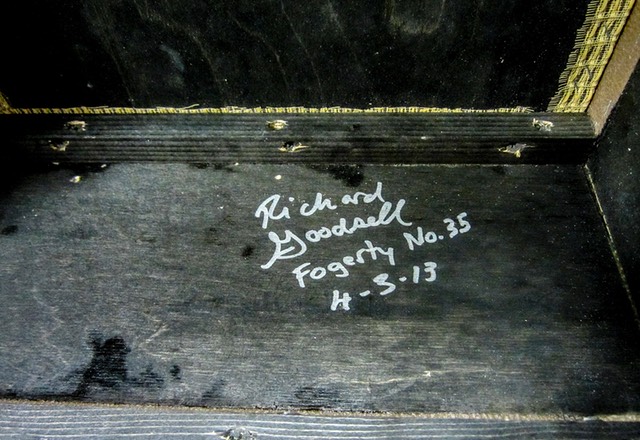 Richard
Goodsell
Fogerty No.35
4-3-13